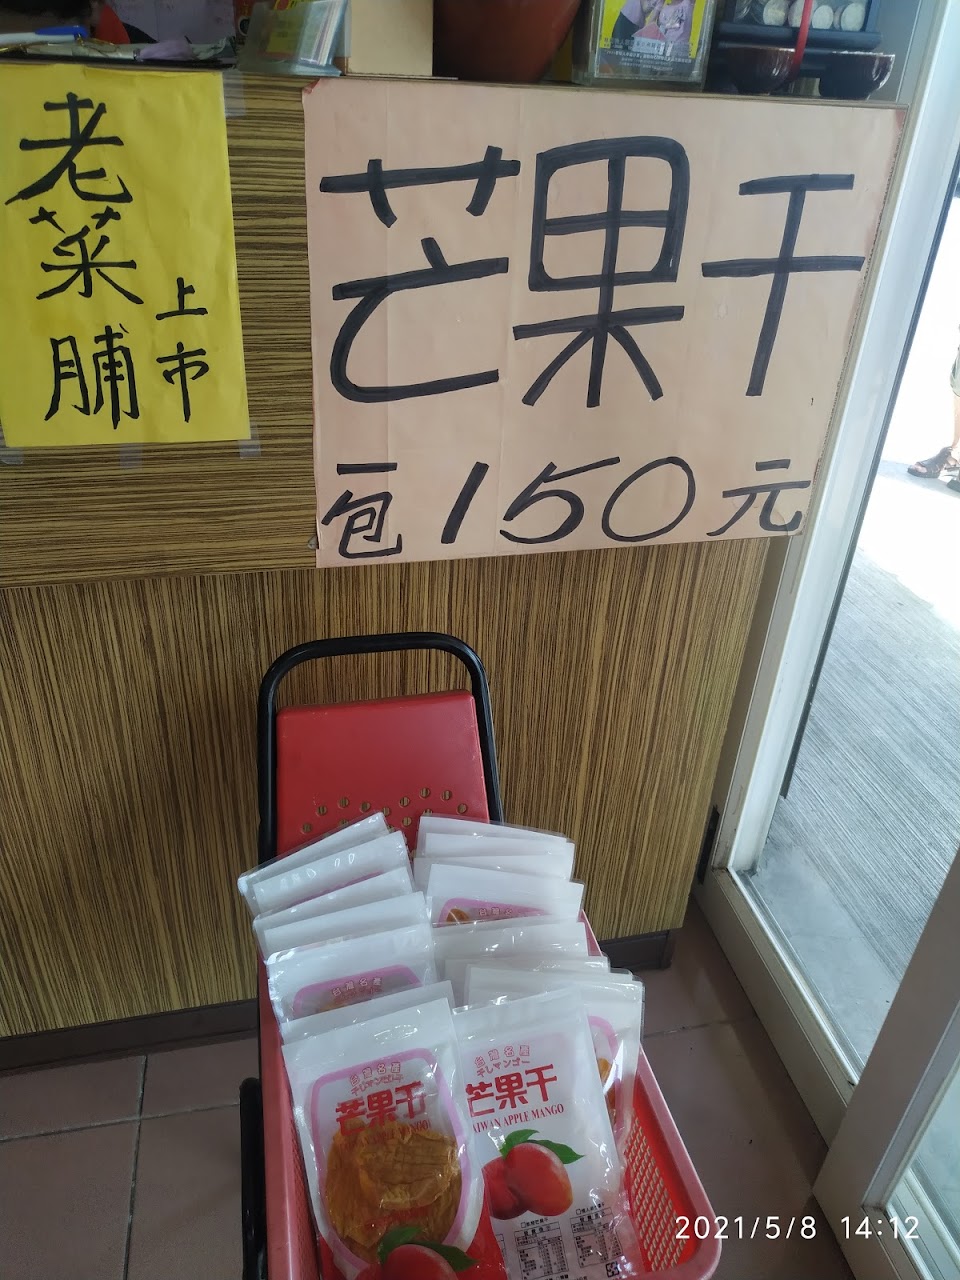 老菜脯
上市
芒果干
一包150元
台灣名產
干しマンゴー
芒果干
台灣名產
干しマンゴー
芒果干
TAIWAN APPLE MANGO
2021/5/8 14:12